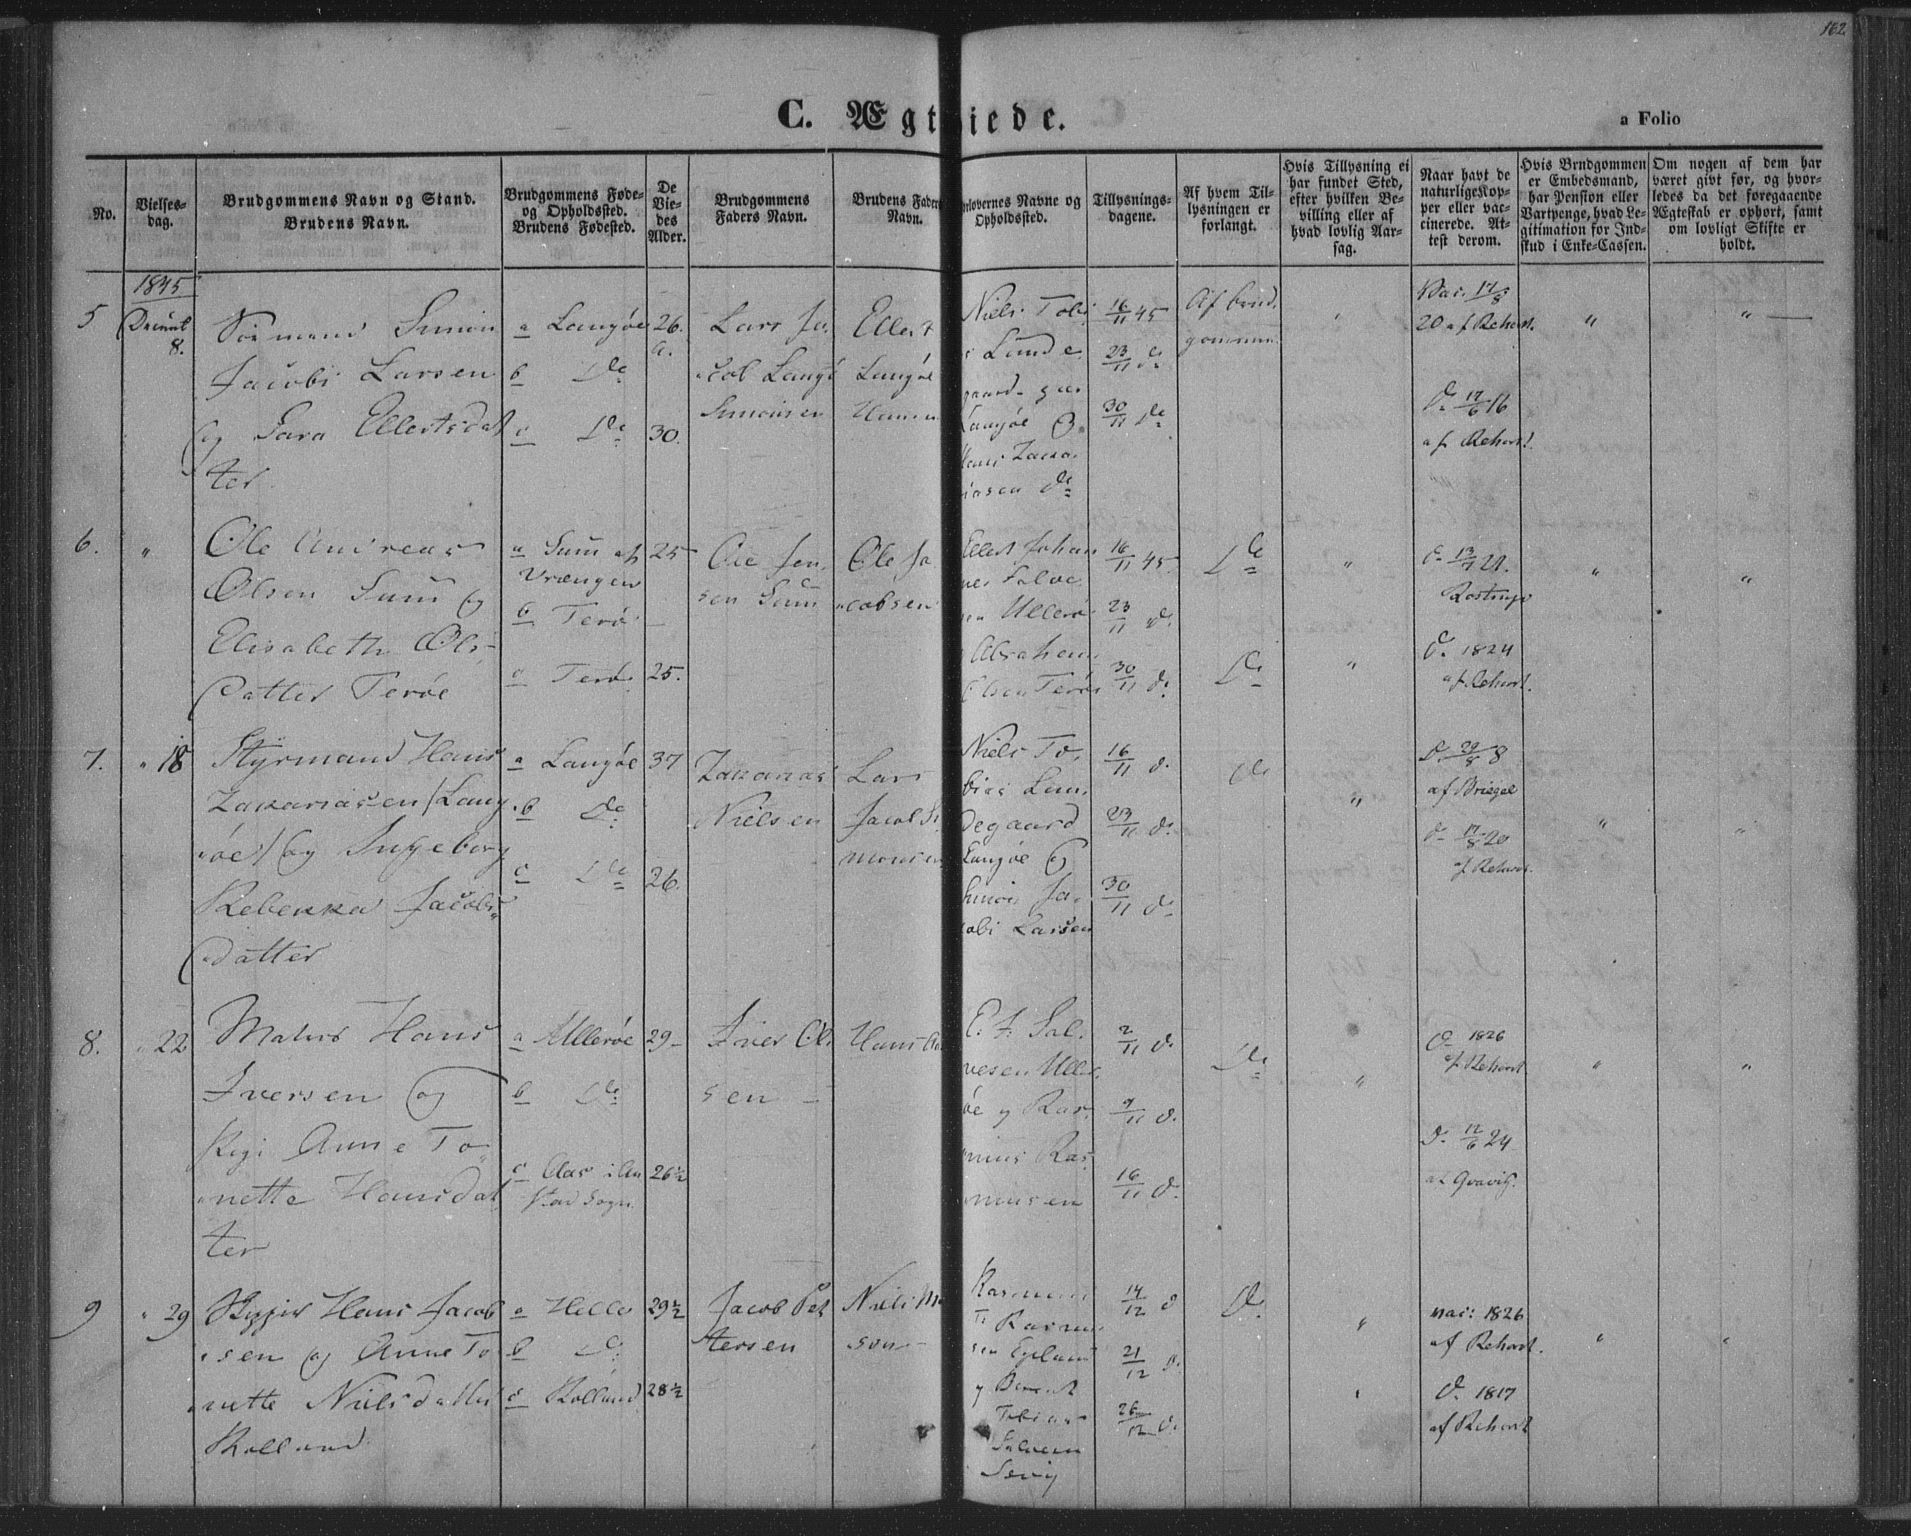 162
C. Ægteviede.
a Folio
No.
Vielses-
dag.
Brudgommens Navn og Stand.
Brudens Navn.
Brudgommens Føde-
og Opholdssted.
Brudens Fødested.
De
Vie-
des
Alder.
Brudgommens
Faders Navn.
Brudens Faders
Navn.
Forlovernes Navne og
Opholdssted.
Tillysnings-
dagene.
Af hvem Til-
lysningen er
forlangt.
Hvis Tillysning ei
har fundet Sted,
efter hvilken Be-
villing eller af
hvad lovlig Aar-
sag.
Naar havt de
naturlige Kop-
per eller vac-
cinerede. At-
test derom.
Hvis Brudgommen
er Embedsmand,
har Pension eller
Vartpenge, hvad Le-
gitimation for Ind-
skud i Enke-Cassen.
Om nogen af dem har
været givt før, og hvor-
ledes da det foregaaende
Ægteskab er ophørt, samt
om lovligt Skifte er
holdt.
1845
5
8.
Simon
Jacobi Larsen
og Sara Ellertsdat
ter
a Langøe
b Do
c Do
26
30.
Lars Ja
cob Langø
Simonsen
Ellert
Langøe
Hansen
Niels Tobi
s Lunde
gaard
Langøe og
Hans Zaca
riasen Do
16/11 45
23/11 do
30/11 Do
Af brud
gommen
Vac. 17/8
20 af Rehort.
D. 17/6 16
af Rehort.
6.
Ole Andreas
Olsen Sum og
Elisabeth Ols
datter Terøe
a Sum af
Vrængen
b Terø
c Terø
25
25.
Ole Jen
sen Sum
Ole Ja
cobsen
Ellert Johan
nes Salve
sen Ullerø
Abraham
Olsen Terø
16/11 45
23/11 d.
30/11 d.
Do
Do
D. 1824
af Rehort.
7.
" 18
Styrmand Hans
Zakariasen/Lang
øe/ og Ingeborg
Rebekka Jacobs
datter
a Langøe
b Do
c Do
37
26.
Zakarias
Nielsen
Lars
Jacob Si
monsen
Niels To
bias Lun
degaard
Langøe og
Simon Ja
cobi Larsen
16/11 d.
23/11 d.
30/11 d.
Do
D. 29/8 8
af Briegel
D. 17/8 20
af Rehort.
8.
" 22
Mathis Hans
Iversen og
Anne To
nette Hansdat
ter
a Ullerøe
b Do
c Aas i
stad Sogn
29
26½
Iver Ol
sen
Hans
E. J. Sal
vesen Uller
øe og Ras
mus Ras
musen
2/11 d.
9/11 d.
16/11 d.
Do
D. 1826
af Rehort
D. 12/6 24
9
" 29
Skipper Hans Jacob
sen og Anne To
nette Nielsdatter
Kolland
a Helle
b Do
c Kolland
29½
28½
Jacob Pet
tersen
Niels
son
Rasmus
T. Rasmus
sen Egeland
og Berent
Tobias
Salvesen
14/12 d
21/12 d.
26/12 d.
D.
vac: 1826
af Rehort.
D. 1817
af Rehort